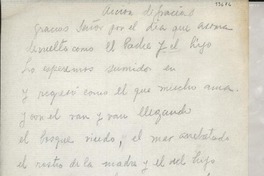 Acción de Gracias
Gracias Señor por el día que asoma
devuelto como el Padre y el Hijo
Lo esperamos sumidos en
y regresó como el que mucho ama
con el van y van llegando
el bosque viendo, el mar
el rostro de la madre y el del hijo